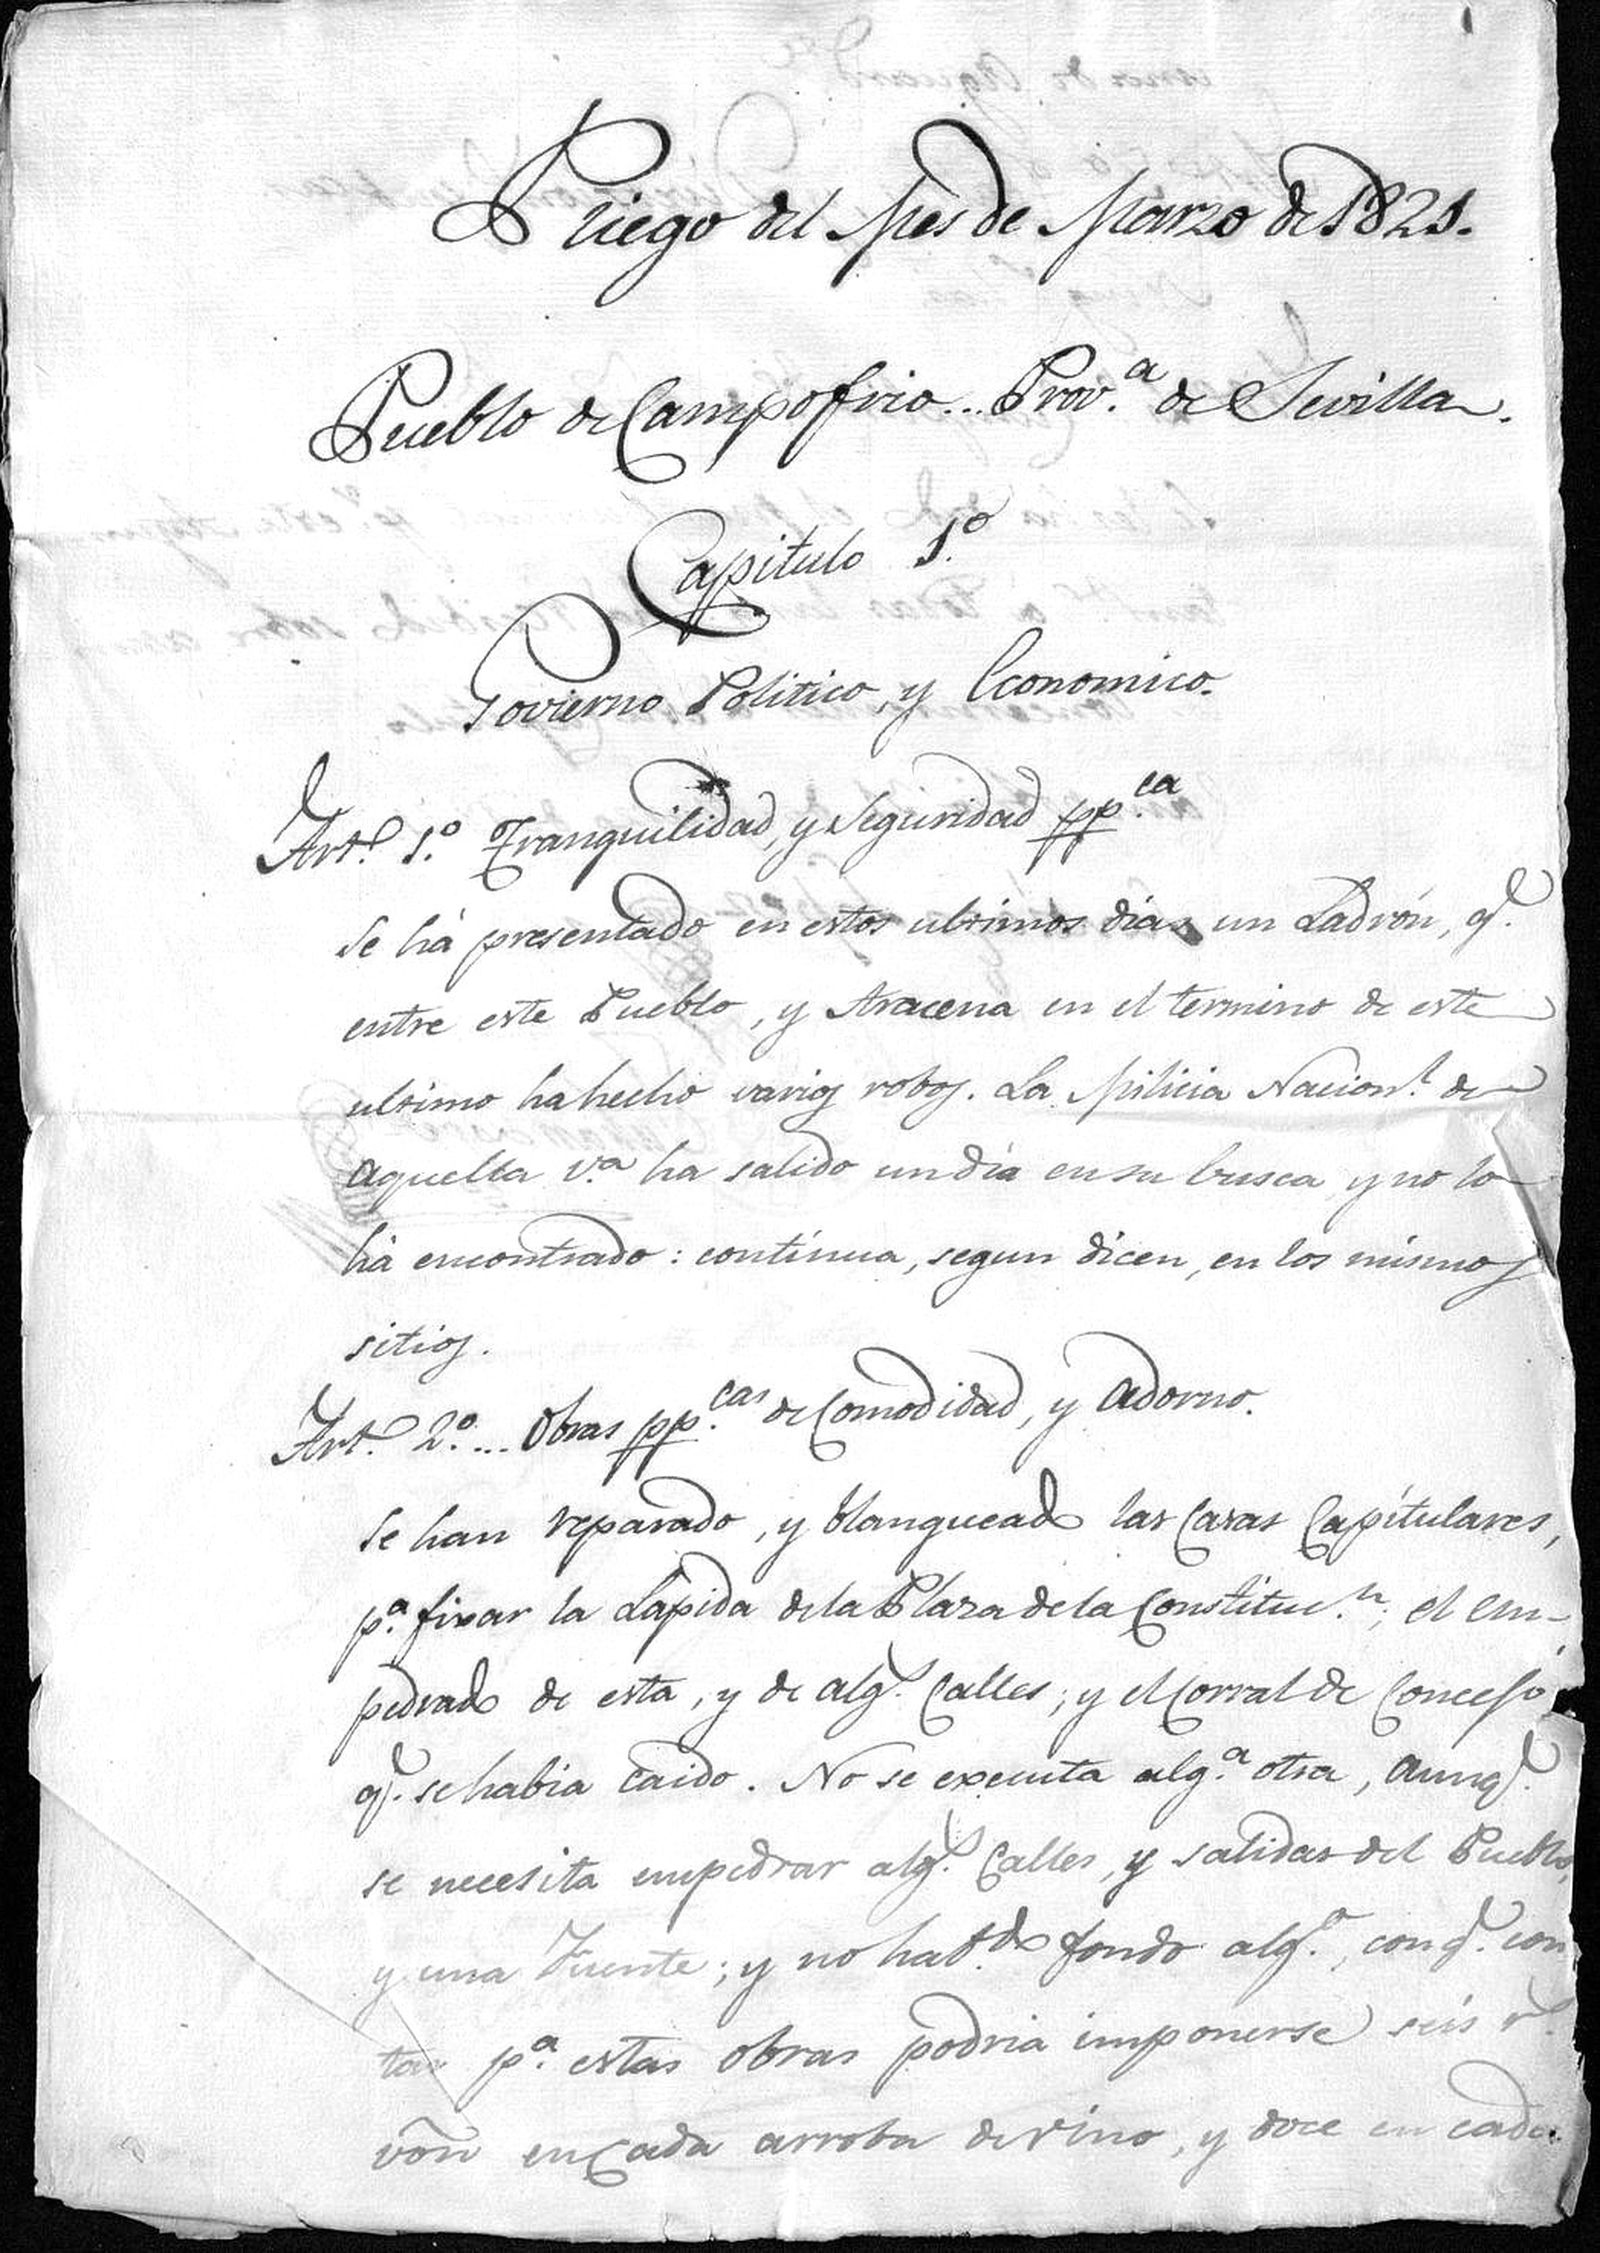 Priego del Mes de Marzo de 1821.
Pueblo de Campofrio... Prov.ª de Sevilla.
Capitulo 1.º
Govierno Politico, y Economico.
Art.º 1.º Tranquilidad, y Seguridad pp.ca
Se há presentado en estos ultimos dias un Ladrón, q.e
entre este Pueblo, y Aracena en el termino de este
ultimo ha hecho varios robos. La Milicia Nacion.l de
aquella v.ª ha salido un día en su busca y no lo
há encontrado: contínua, segun dícen, en los mísmos
sitios.
Art.º 2.º... Obras pp.cas de Comodidad, y adorno.
Se han reparado, y blanqueado las Casas Capítulares,
p.ª fixar la Lapida de la Plaza de la Constituc.n; el em-
pedrado de esta, y de alg.s Calles; y el Corral de Concejo
q.e se habia caido. No se executa alg.ª otra, aunq.e
se necesita empedrar alg.s Calles, y salidas del Pueblo,
y una Fuente; y no hab.do fondo alg.º, con q.e con
tar p.ª estas obras podria imponerse seís r.s
von en Cada arroba de vino, y doce en cada